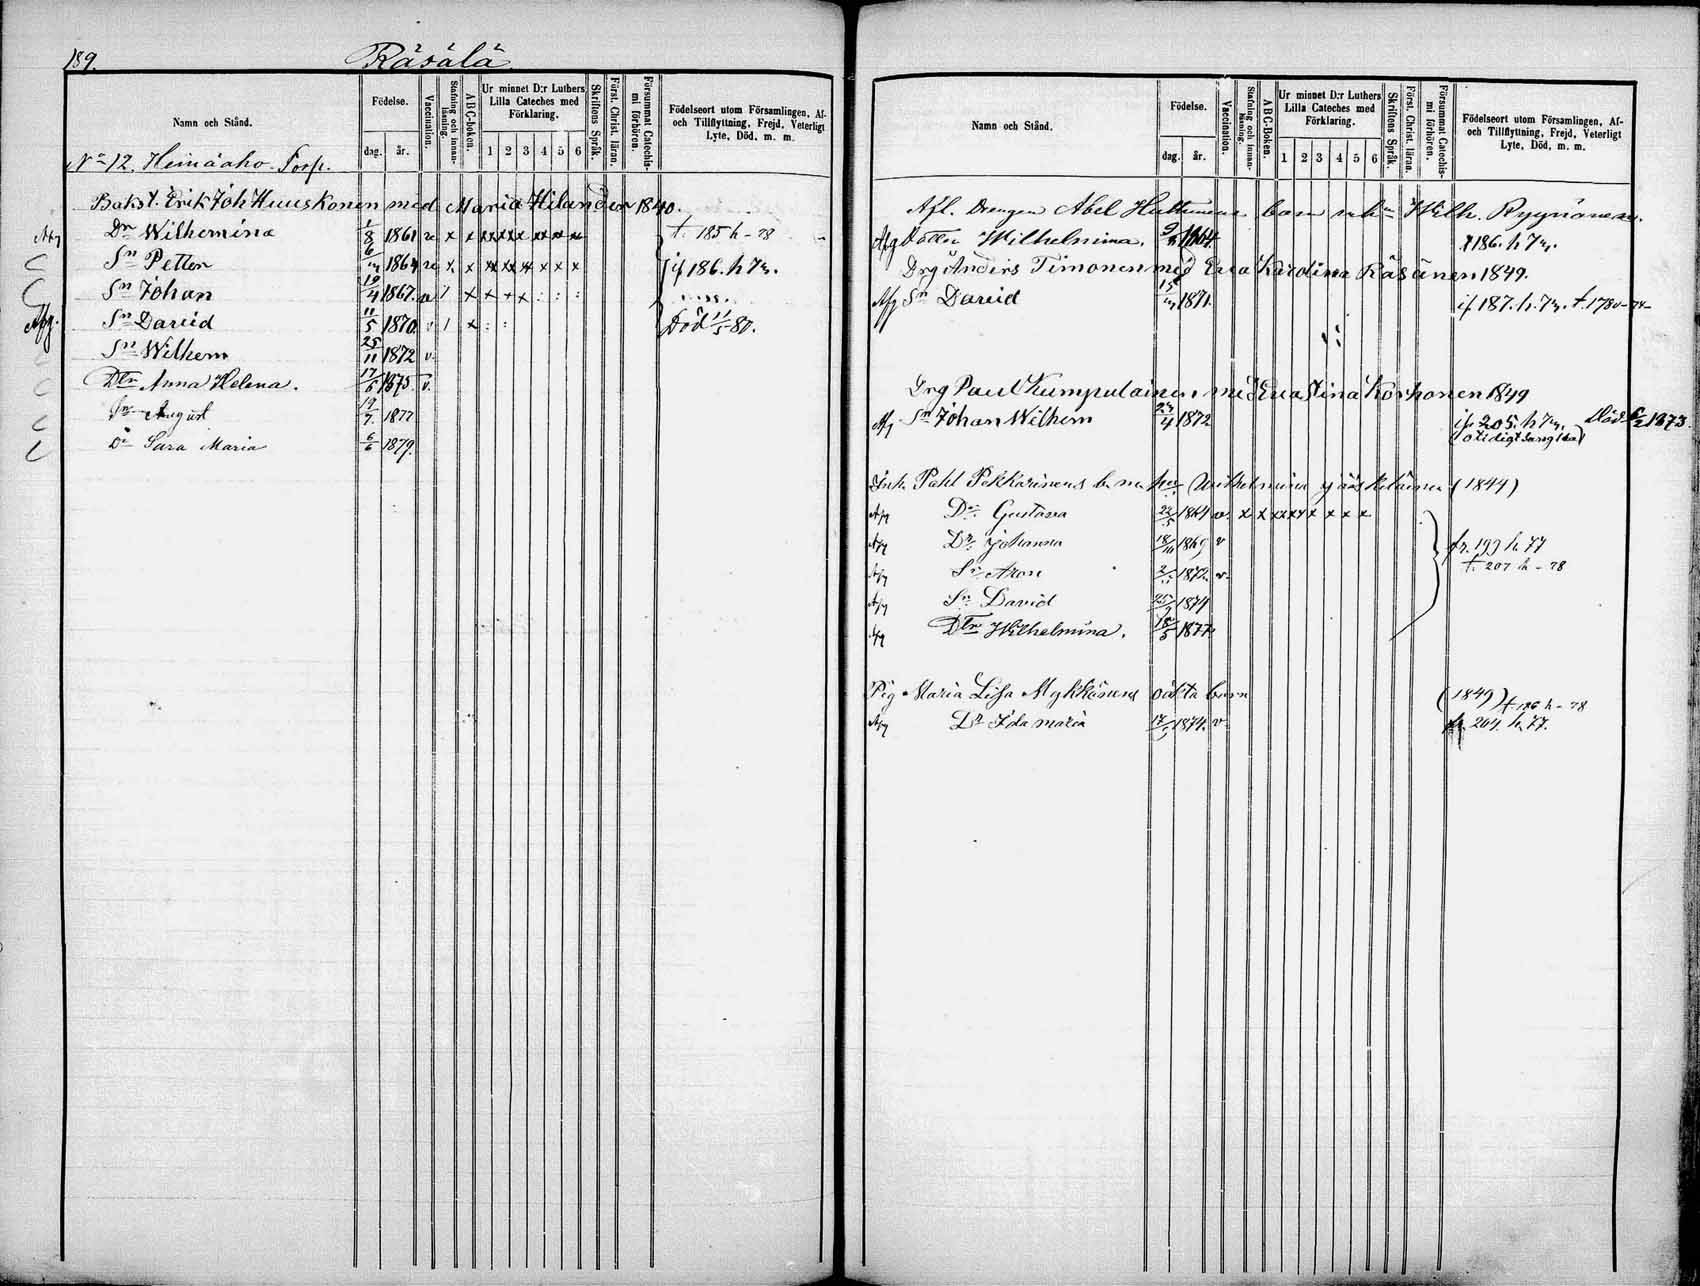 189.
Räsälä
Namn och Stånd.
Födelse.
dag. år.
Vaccination.
Stafning och innanläsning.
ABC-boken.
Ur minnet D:r Luthers Lilla Cateches med Förklaring.
1 2 3 4 5 6
Skriftens Språk.
Först. Christ. läran.
Försummat Catechismi förhören.
Födelseort utom Församlingen, Af- och Tillflyttning, Frejd, Veterligt Lyte, Död, m. m.
No 12. Heinäaho Torp.
Erik Joh Huuskonen med Maria Hilander 1840.
Dr Wilhemina 1/8 1861 x x xx xx x xx x x t. 185 h-78
Sn Petter 1864 x x xx xx x x x x if 186. h 73.
Sn Johan 10/4 1867. 1 x x x x : : :
Afg. Sn David 11/5 1870 v 1 x : : Död 11/5 80.
Sn Wilhem 25/11 1872 v.
Dtr Anna Helena. 17/6 1875. v.
Sn August 19/7. 1877
Dr Sara Maria 6/6 1879.
Namn och Stånd.
Födelse.
dag. år.
Vaccination.
Stafning och innanläsning.
ABC-Boken.
Ur minnet D:r Luthers Lilla Cateches med Förklaring.
1 2 3 4 5 6
Skriftens Språk.
Först. Christ. läran.
Försummat Catechismi förhören.
Födelseort utom Församlingen, Af- och Tillflyttning, Frejd, Veterligt Lyte, Död, m. m.
Afl. Drengen Abel Huttunens barn Wilh. Ryynänen.
Afg Dotter Wilhelmina. 1864 186. h 73.
Drg Anders Timonen med Eva Karolina Räsänen 1849.
Afg Sn David 15 1871. if 187. h. 73. t. 178
Drg Paul Kumpulainen med Eva Stina Korhonen 1849
Afg Sn Johan Wilhem 23/4 1872 if. 205. h 73. Död 6/2 1873.
Inh. Pahl Pekkarinens Wilhelmina Jääskeläinen (1844)
Afg Dr Gustava 22/5 1864 v. x x xx x x x x x x
Afg Dr Johanna 18/10 1869 v fr. 199 h. 77
Afg Sn Aron 1872 v. t. 207 h-78
Afg Sn David 25/9 1874
Afg Dtr Wilhelmina. 18/5 1877.
Pig Maria Lisa Mykkänens oäkta barn (1849) t 186 h-78
Afg Dr Ida Maria 1874. v 204. h. 77.